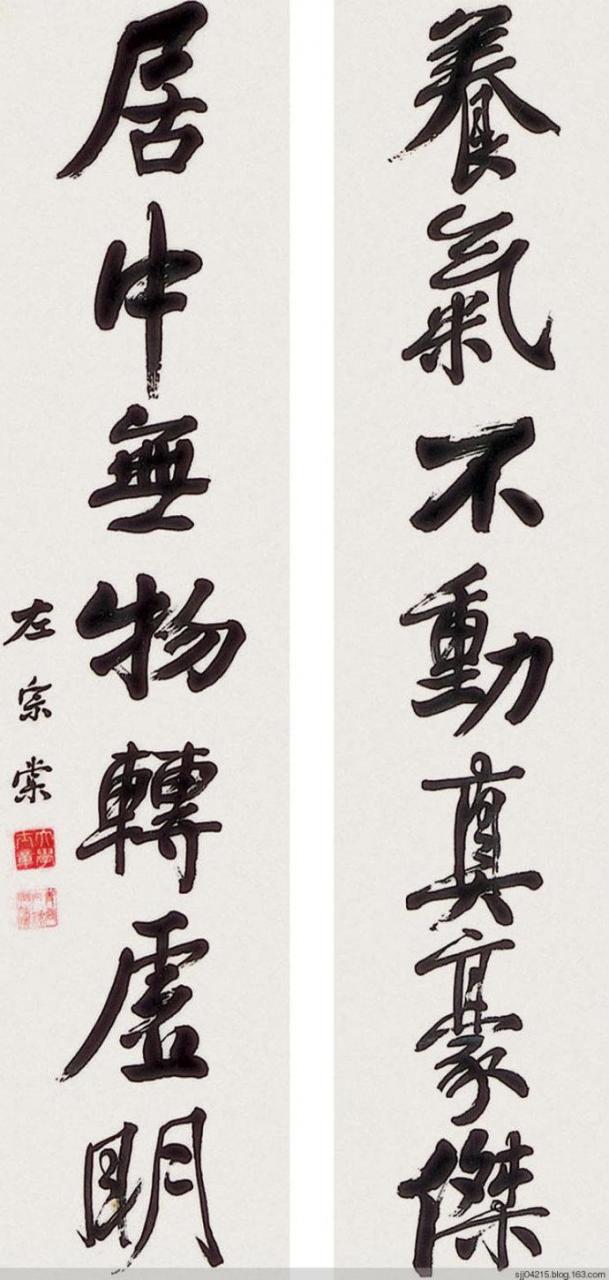 養氣不動真豪傑
居中無物轉虛明
左宗棠
大學士章
sjj04215.blog.163.com